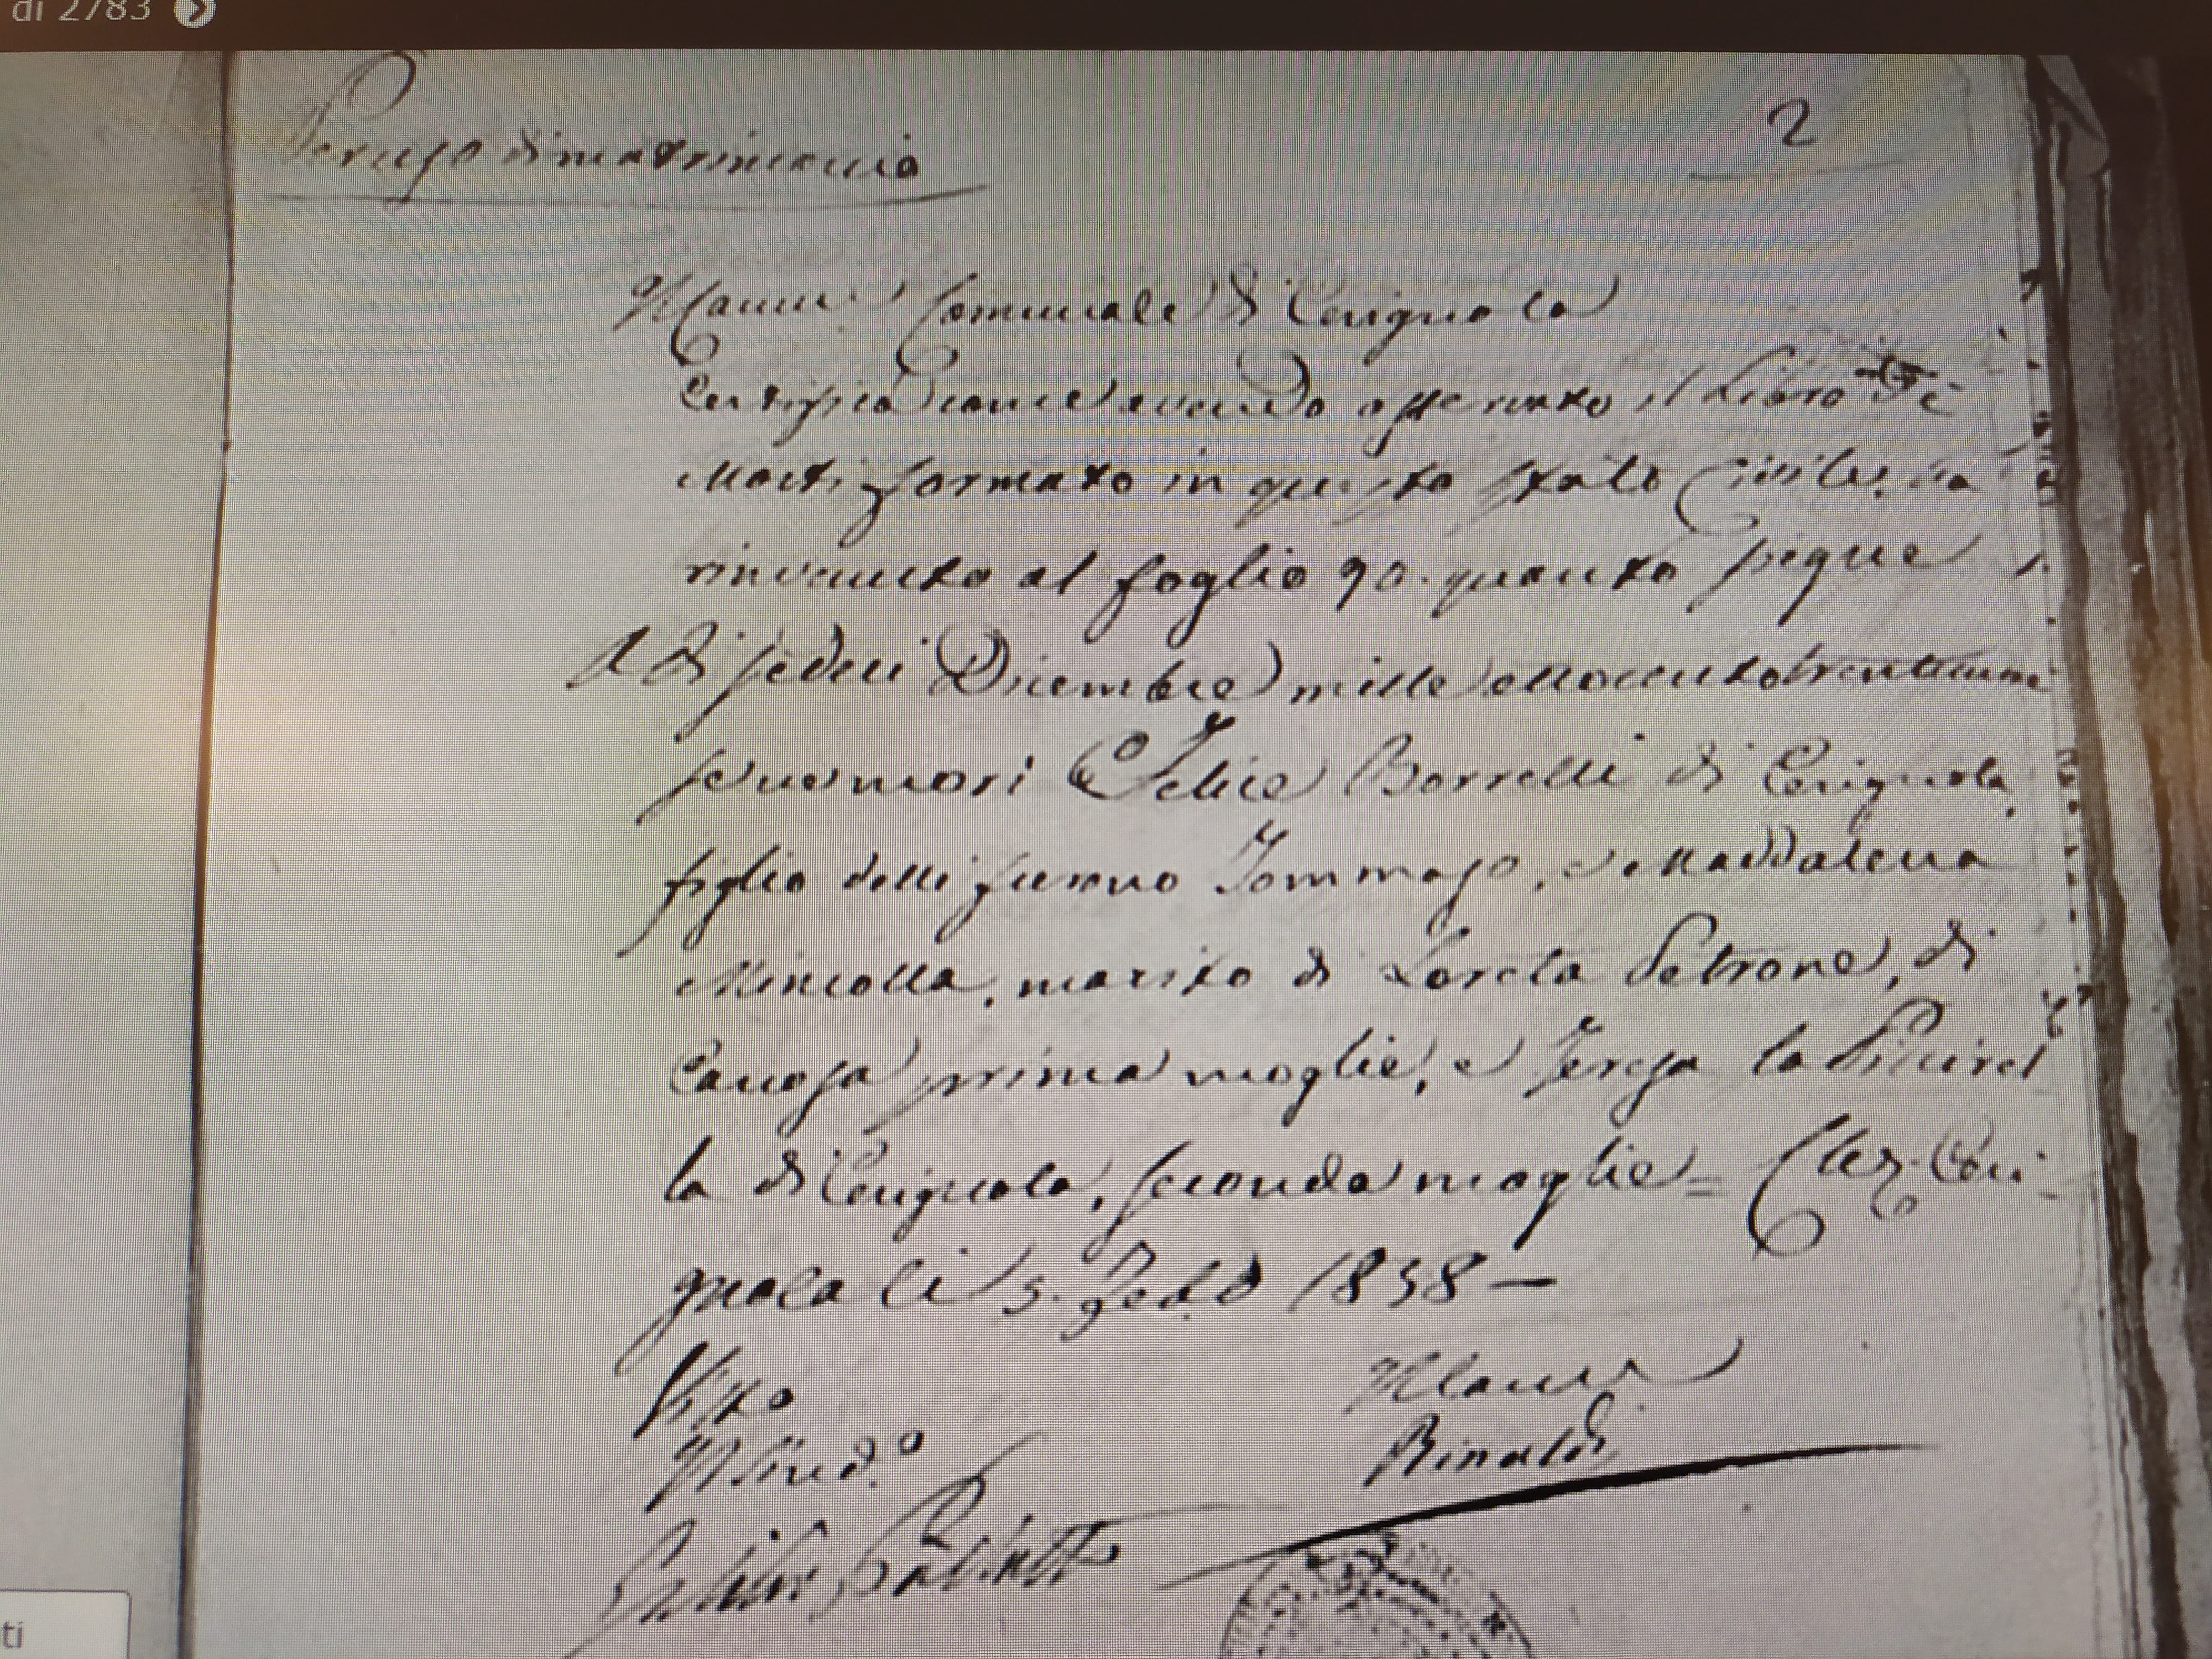 di 2783
2
Per uso di matrimonio
Il Canc.e Comunale di Cerignola
Certifica come avendo osservato il Libro de
Morti formato in questo Stato Civile, ha
rinvenuto al foglio 90. quanto segue
A di sedeci Dicembre mille ottocento trentuno
se ne morì Felice Borrelli di Cerignola
figlio delli furono Tommaso, e Maddalena
Mincolla, marito di Loreta Petrone, di
Canosa prima moglie, e Teresa la
la di Cerignola, seconda moglie = Ceri
gnola li 5. 1838 —
Visto
Il Canc.e
Il Sind.o
Rinaldi
ti